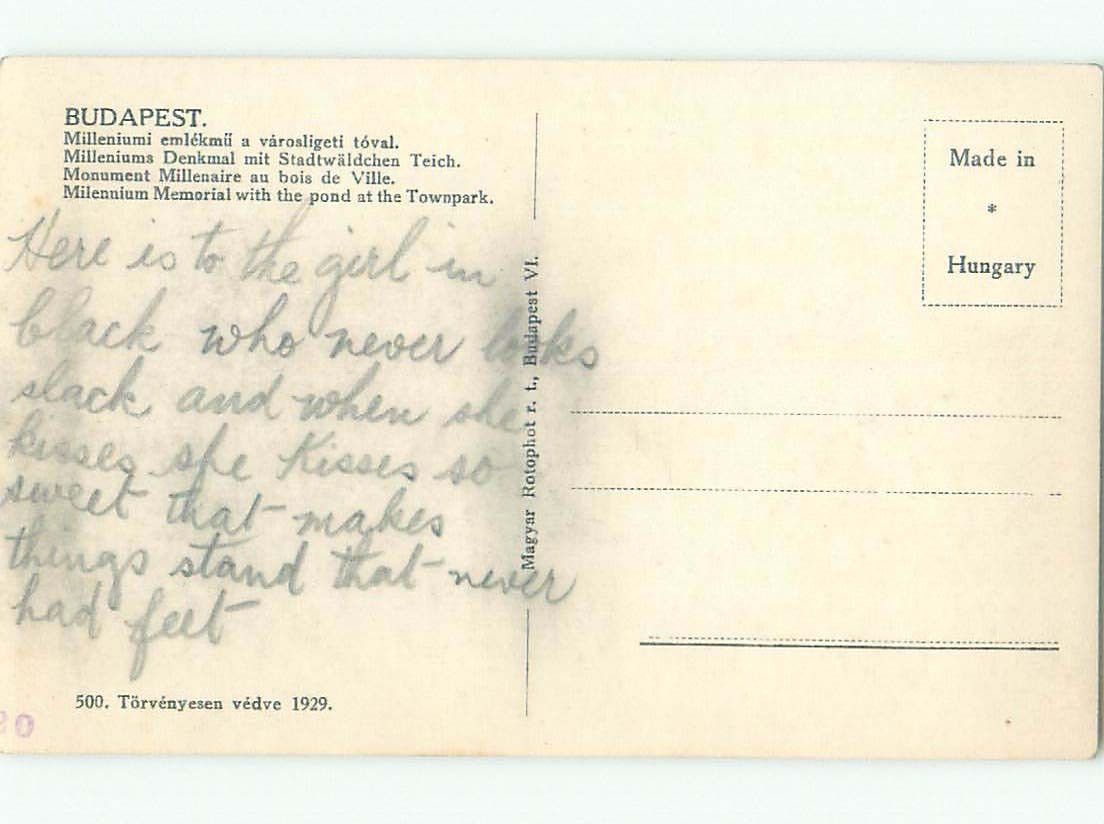 BUDAPEST.
Milleniumi emlékmű a városligeti tóval.
Milleniums Denkmal mit Stadtwäldchen Teich.
Monument Millenaire au bois de Ville.
Milennium Memorial with the pond at the Townpark.
Here is to the girl in
black who never looks
slack and when she
kisses she kisses so
sweet that makes
things stand that never
had feet
500. Törvényesen védve 1929.
Magyar Rotophot r. t., Budapest VI.
Made in
*
Hungary